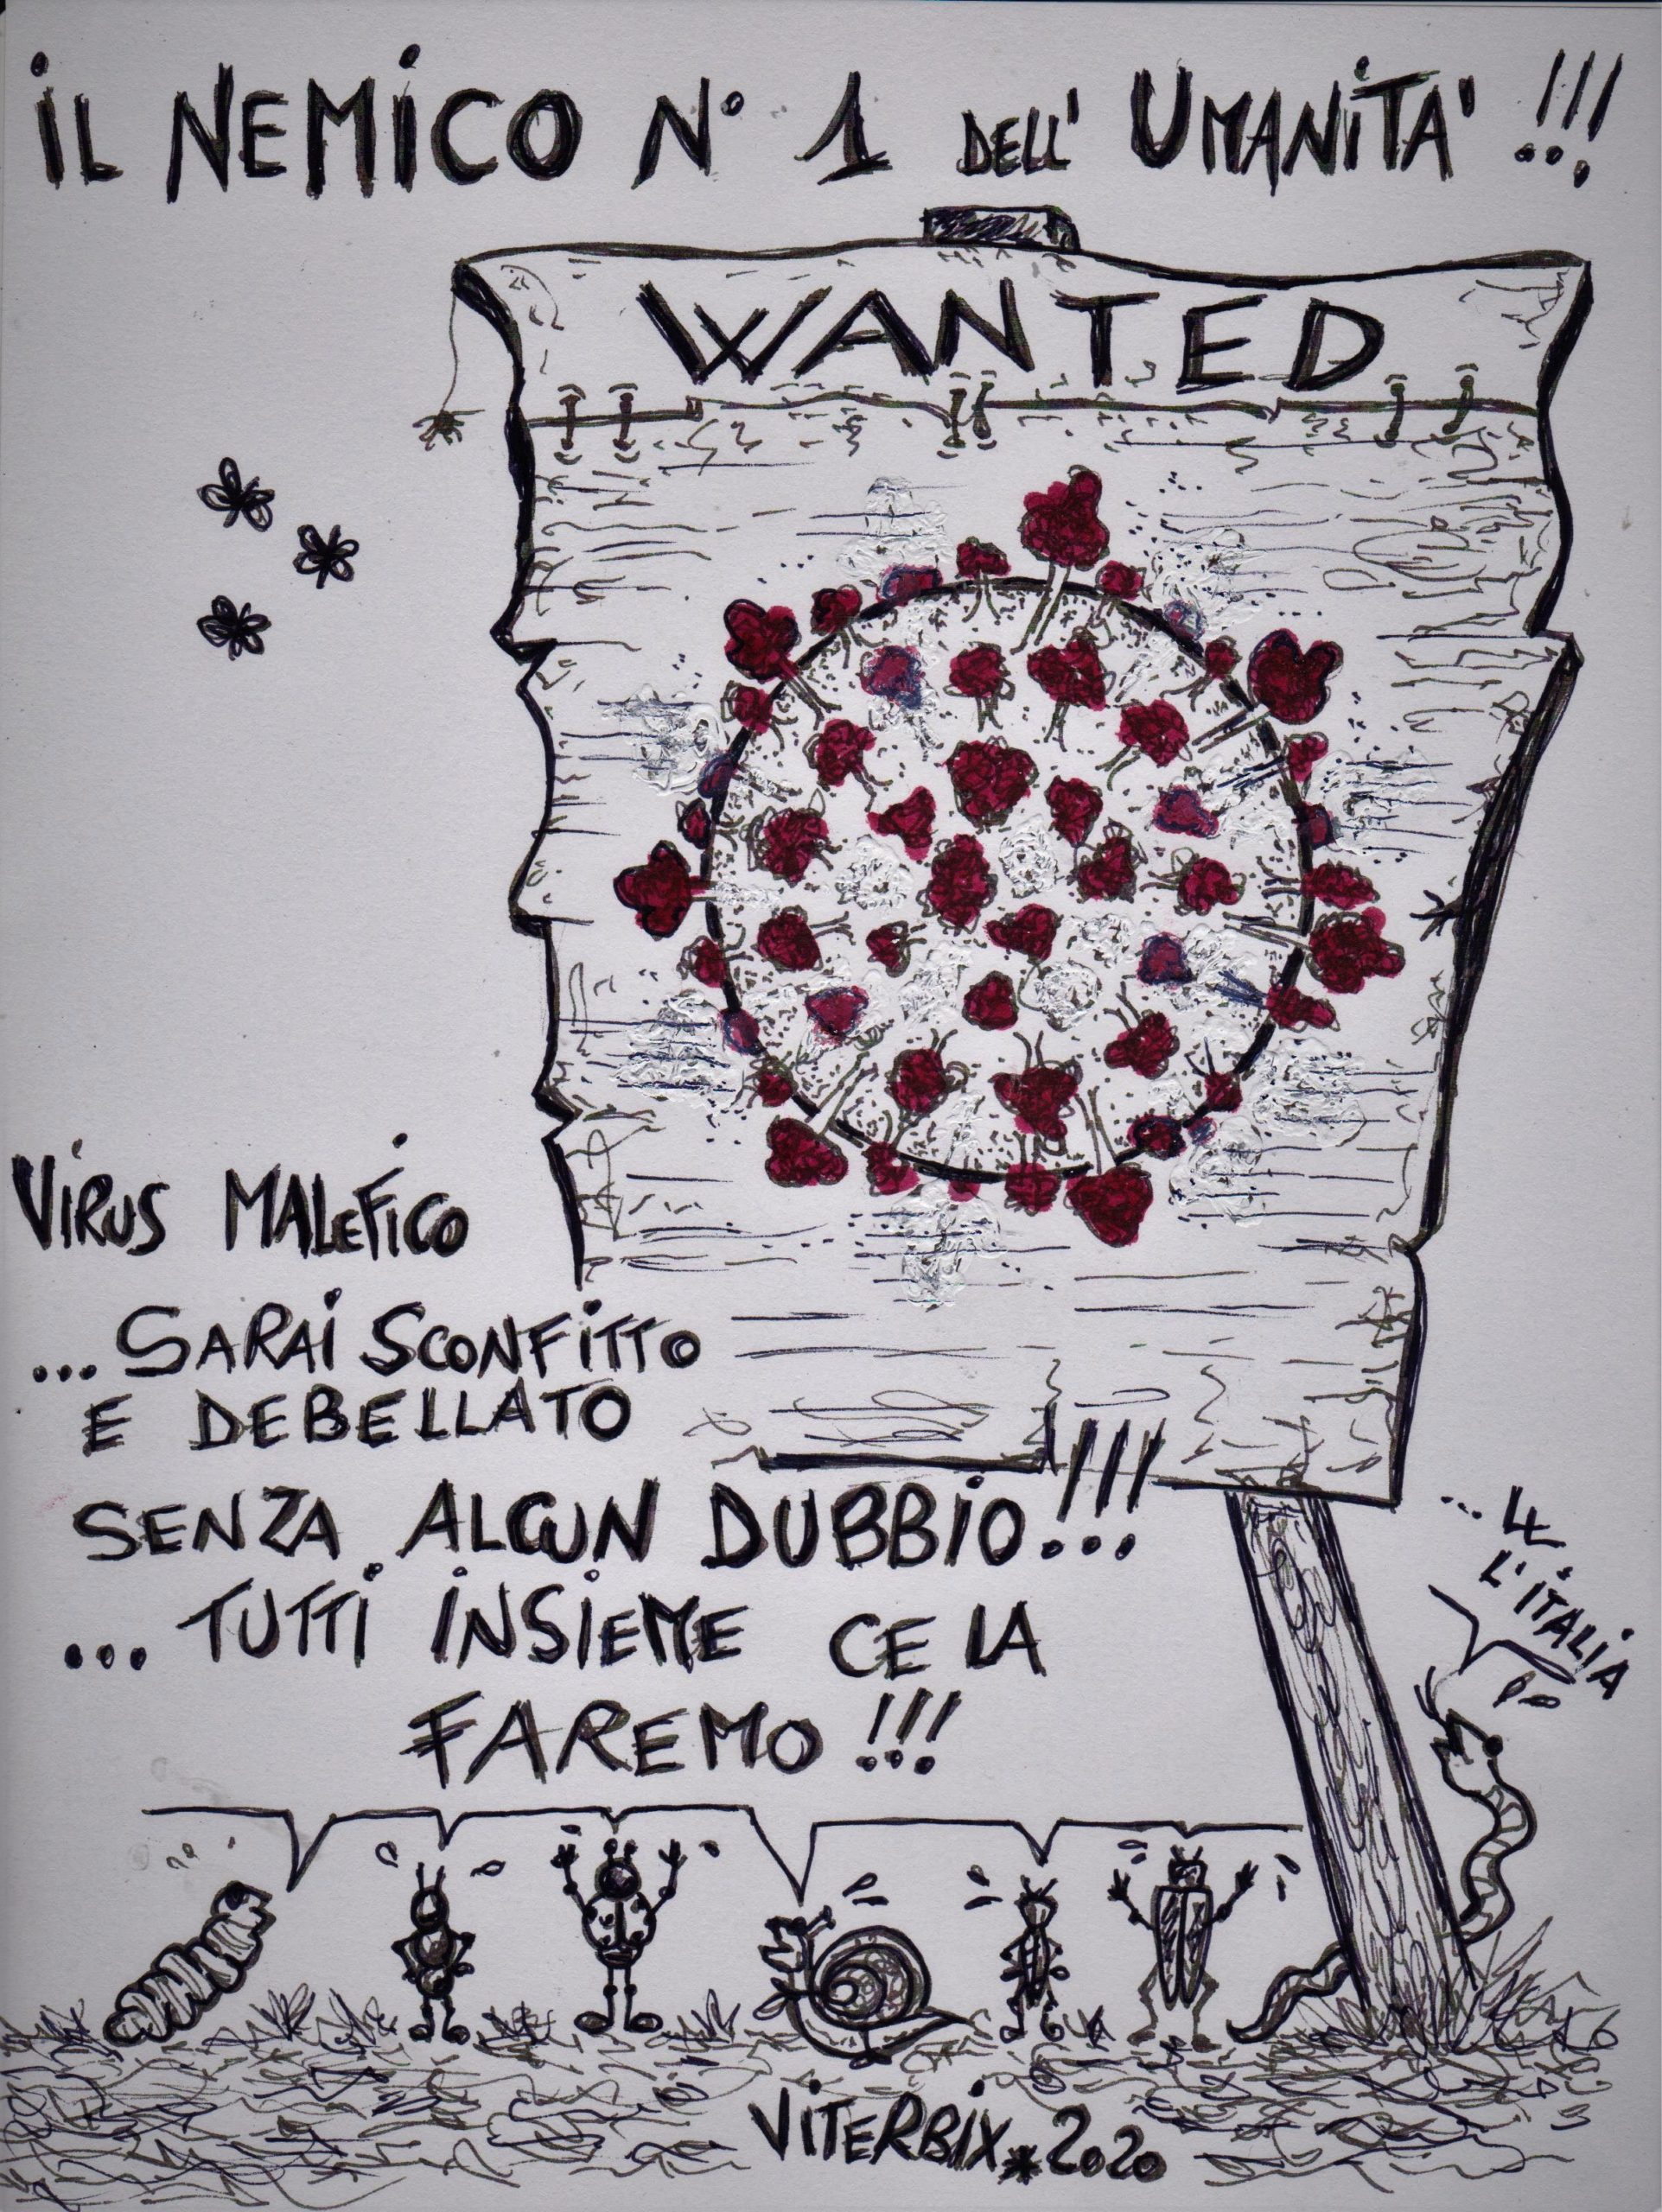 iL NEMiCO N° 1 DELL' UMANiTA' !!!
WANTED
ViRUS MALEFiCO
...SARAi SCONFiTTO
E DEBELLATO
SENZA ALCUN DUBBiO!!!
... TUTTi iNSiEME CE LA
FAREMO!!!
L'iTALiA
ViTERBiX*2020